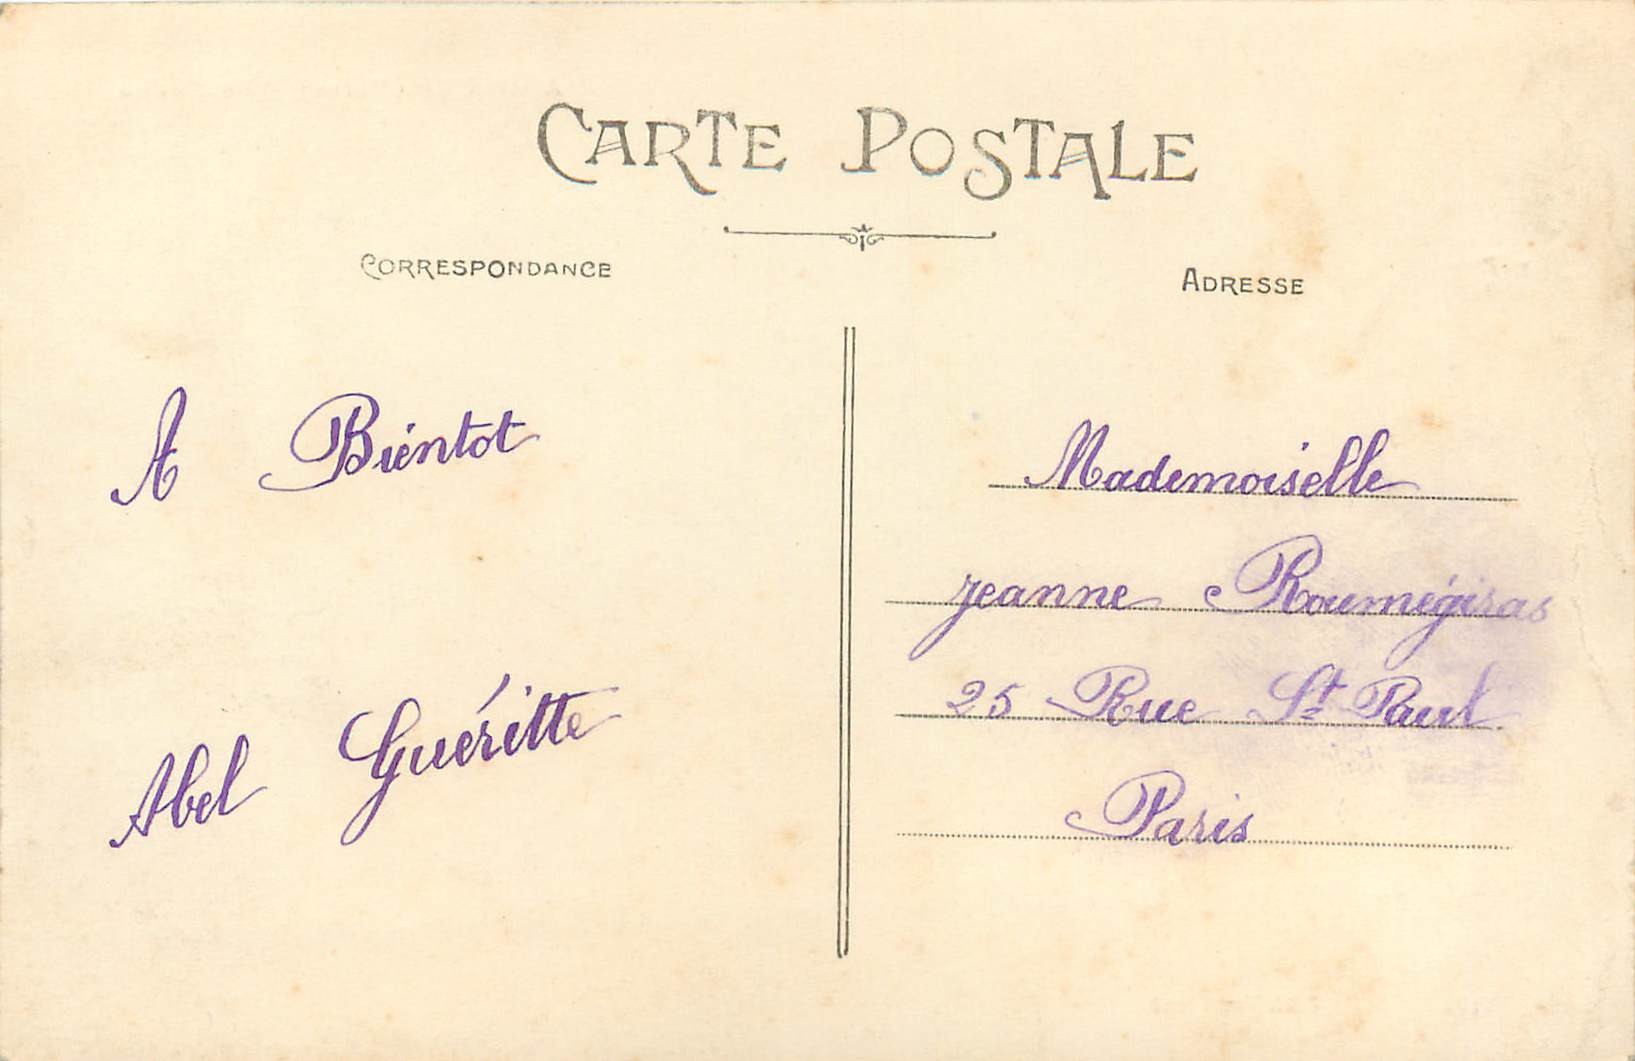 CARTE POSTALE
CORRESPONDANCE
ADRESSE
A Bientot
Abel Guéritte
Mademoiselle
Jeanne Roumégiras
25 Rue St Paul
Paris